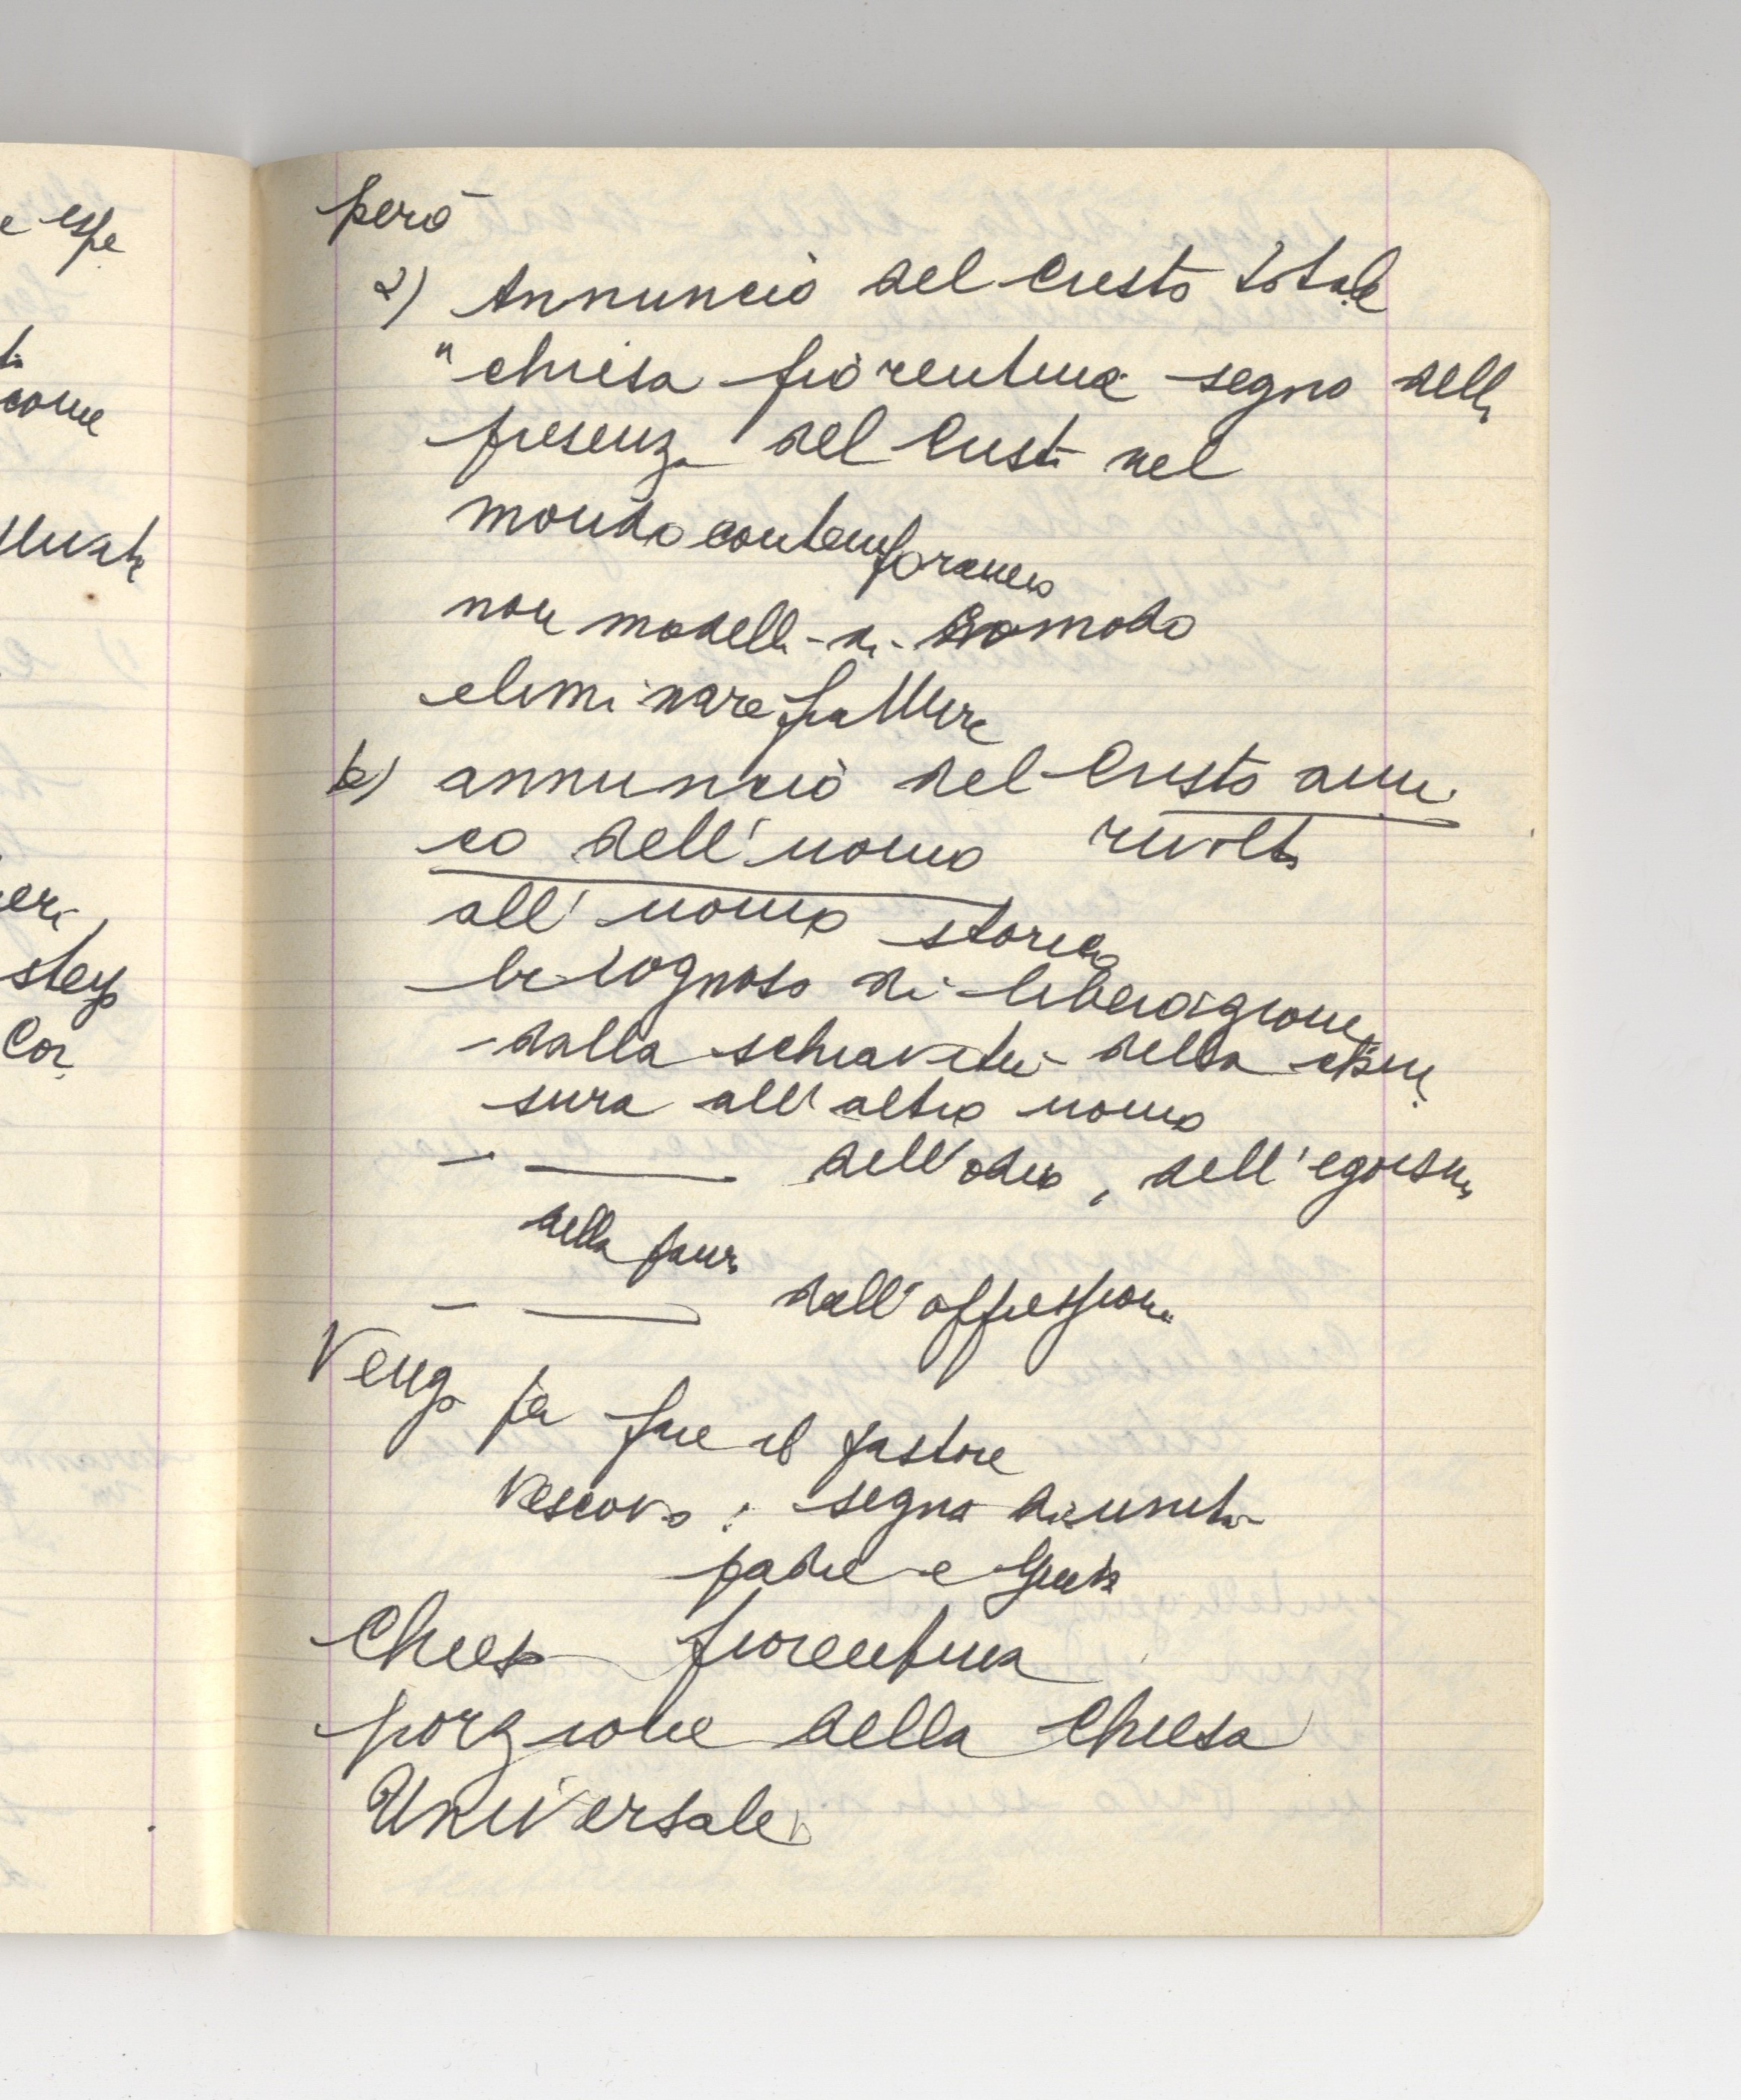 però
a) Annuncio del Cristo totale
"chiesa fiorentina segno della
presenza del Cristo nel
mondo contemporaneo
non modelli di comodo
eliminare fratture
b) annuncio del Cristo ami
co dell'uomo rivolto
all'uomo storico
bisognoso di liberazione
- dalla schiavitù della chiu
sura all'altro uomo
- — dell'odio, dell'egoismo
della paura
- — dall'oppressione
Vengo per fare il pastore
Vescovo: segno di unità
padre e
Chiesa fiorentina
porzione della Chiesa
Universale
e espe
come
steso